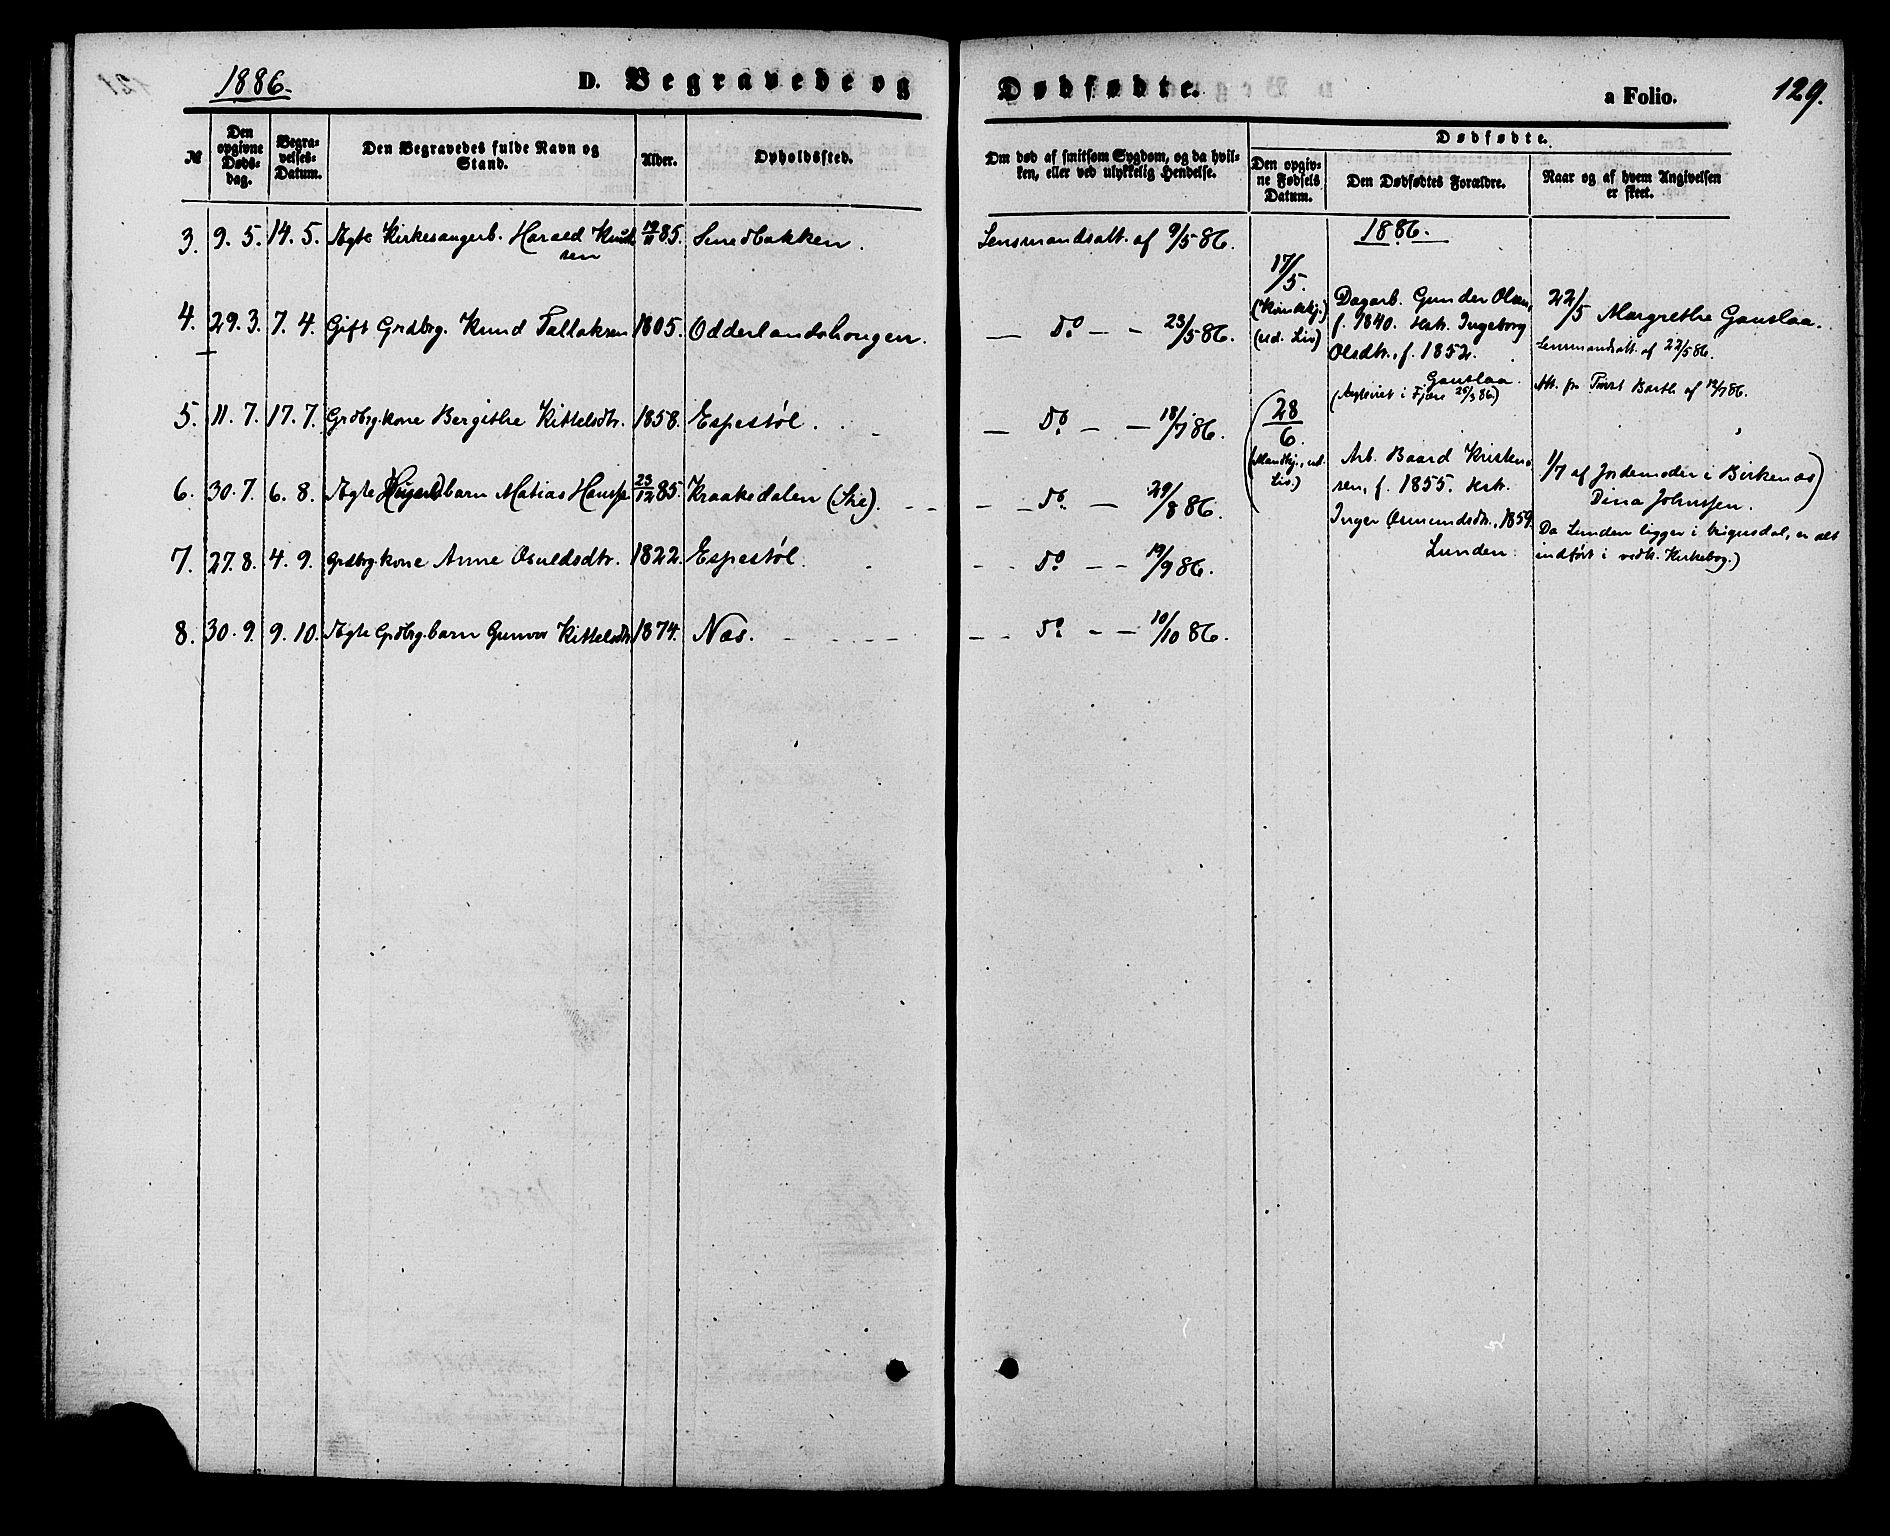 1886.
D. Begravede og Dødfødte.
a Folio.
129.
№
Den opgivne Døds-dag.
Begra-velses-Datum.
Den Begravedes fulde Navn og Stand.
Alder.
Opholdssted.
Om død af smitsom Sygdom, og da hvil-ken, eller ved ulykkelig Hendelse.
Dødfødte.
Den opgiv-ne Fødsels Datum.
Den Dødfødtes Forældre.
Naar og af hvem Angivelsen er skeet.
3. 9. 5. 14. 5. Ægte Kirkesangerb. Harald Knud-sen 19/11 85. Smedbakken. Lensmandsatt. af 9/5 86.
4. 29. 3. 7. 4. Gift Grdbrg. Knud Tallaksen 1805. Odderlandshougen. — Do — — 23/5 86.
5. 11. 7. 17. 7. Grdbrg.kone Bergithe Kittelsdtr. 1858. Espestøl. — Do — — 18/7 86.
6. 30. 7. 6. 8. Ægte barn Matias Hans 23/12 85. Kraakedalen (Skie). — — Do — 29/8 86.
7. 27. 8. 4. 9. Grdbrg.kone Anne Osuldsdtr. 1822. Espestøl. — — Do — — 19/9 86.
8. 30. 9. 9. 10. Ægte Grdbrg.barn Gunvor Kittelsdtr. 1874. Næs. — — Do — — 10/10 86.
1886.
17/5.
(Kvindekj.)
(ud. Liv)
Dagarb. Gunder Olsen,
f. 1840. Hstr. Ingeborg
Olsdtr., f. 1852.
Gauslaa.
(Ægteviet i Fjære 25/3 86)
22/5 Margrethe Gauslaa.
Lensmandsatt. af 22/5 86.
Att. fr. Barth af 12/7 86.
(28/6.
Mandkj., ud.
Liv.)
Arb. Baard Kristen-
sen, f. 1855. Hstr.
Inger Osmundsdtr., 1859.
Lunden.
1/7 af Jordemoder i Birkenæs)
Dina Johnssen.
Da Lunden ligger i Vegusdal, er det
indført i vedk. Kirkebog.)